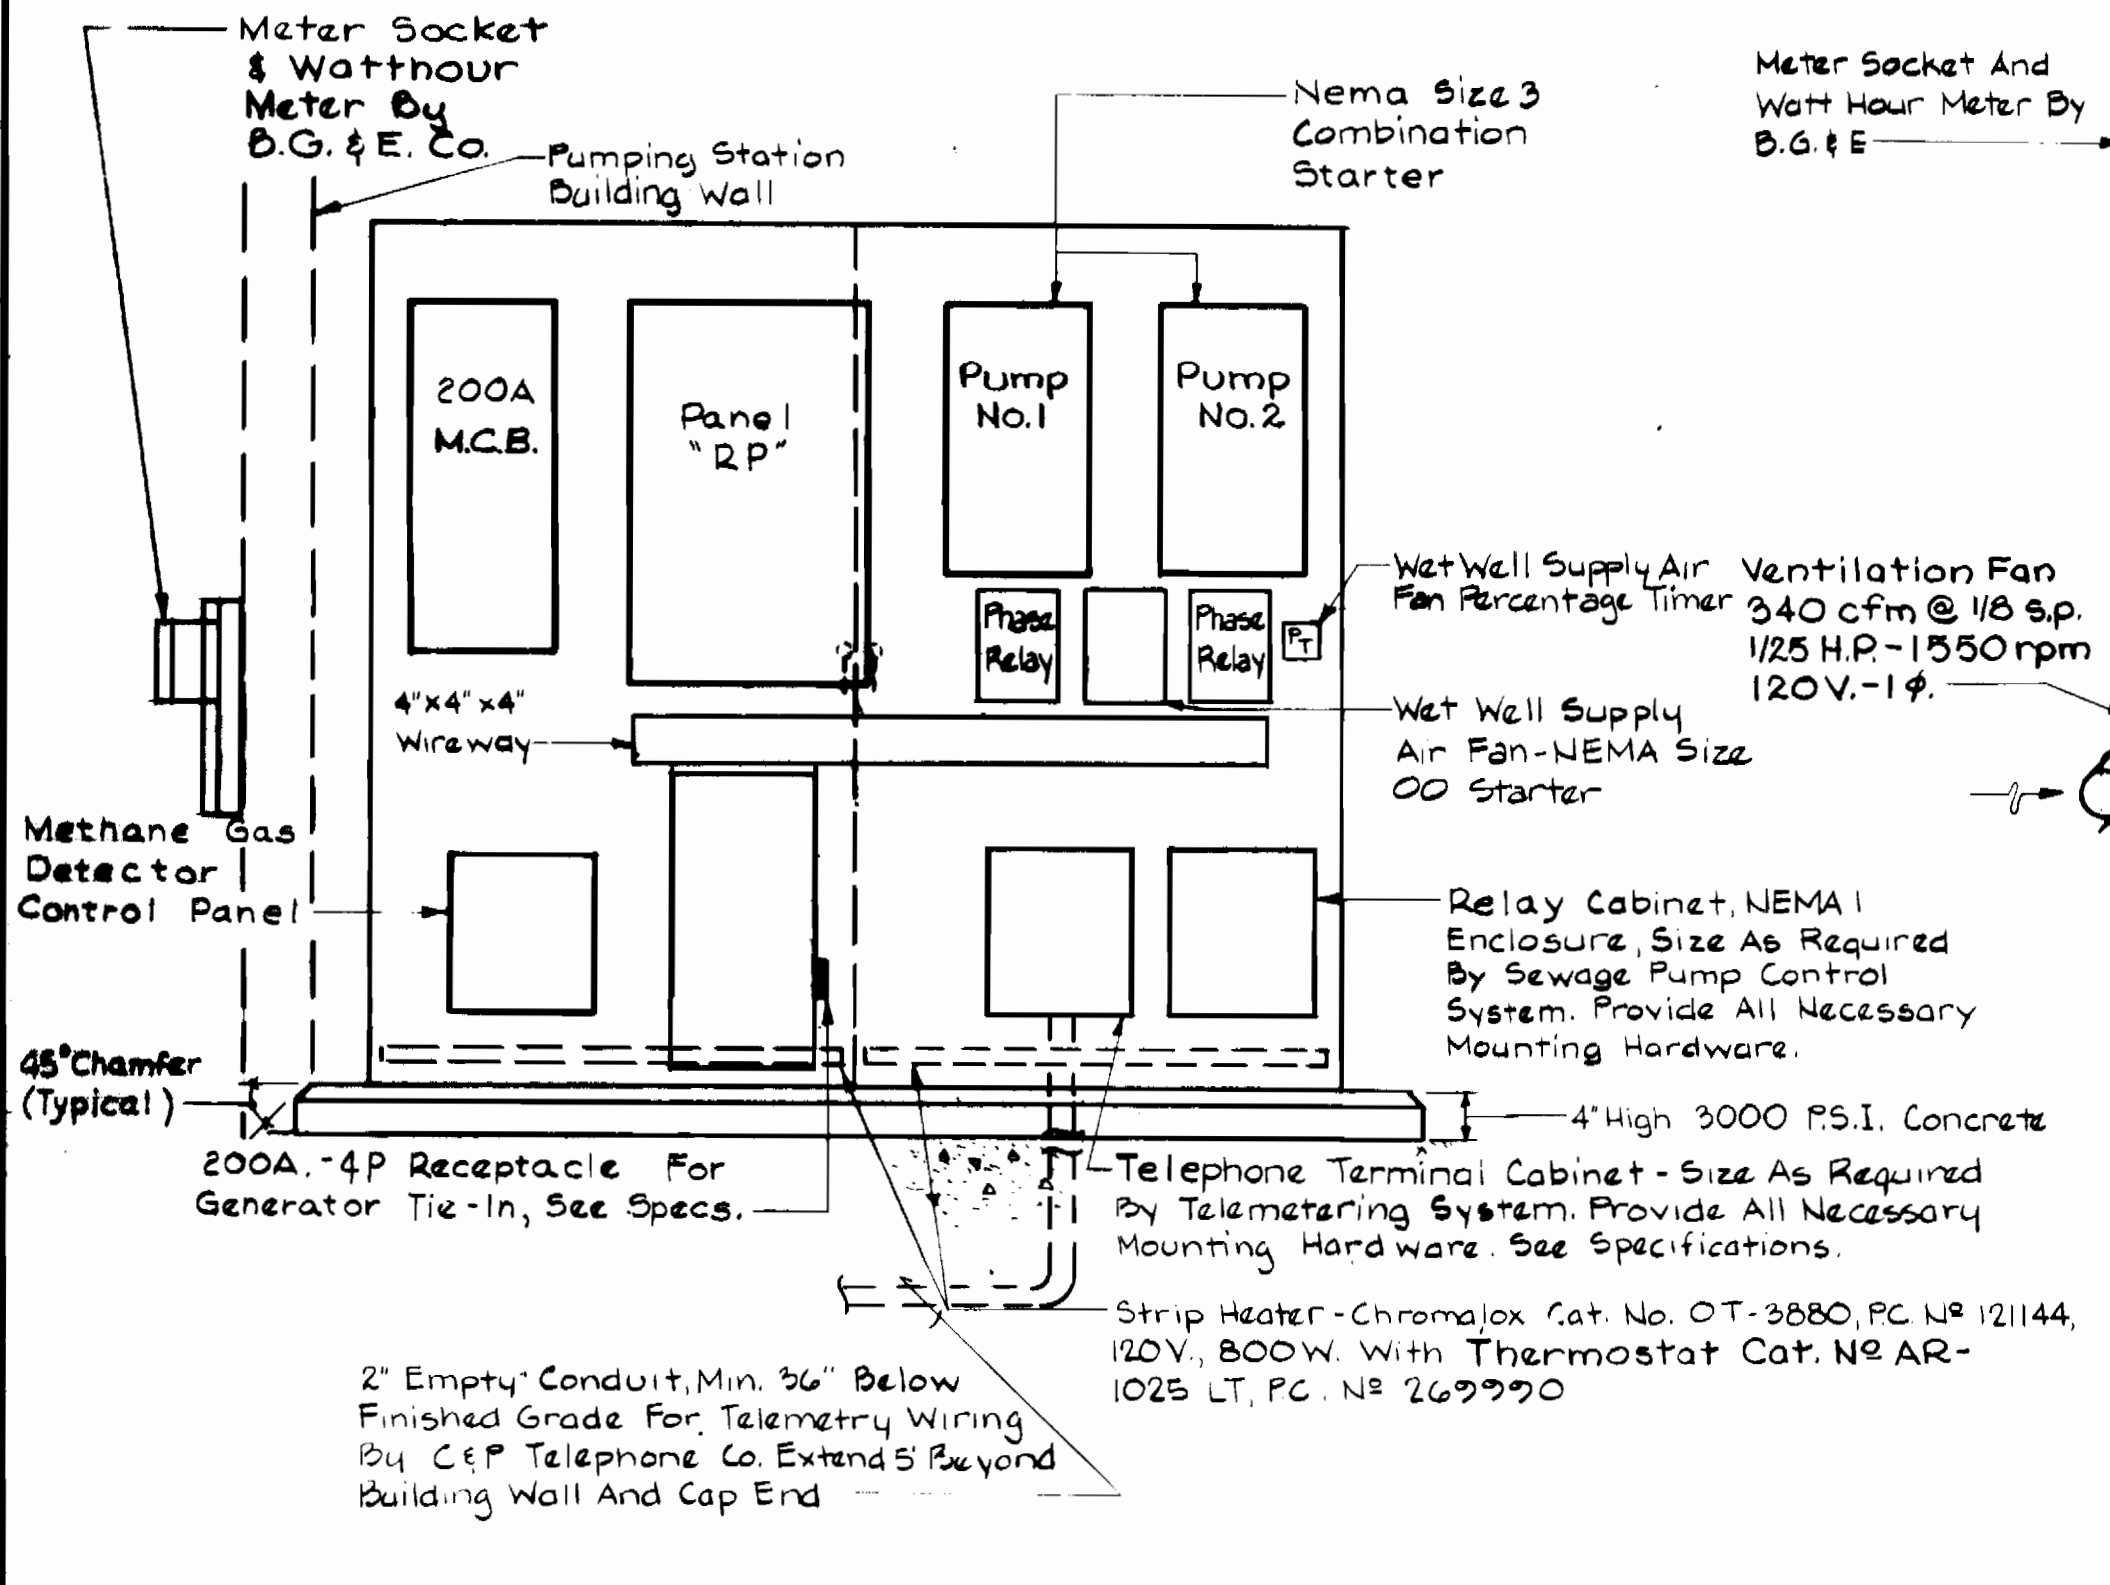 Meter Socket
& Watthour
Meter By
B.G. & E. Co.
Pumping Station
Building Wall
Nema Size 3
Combination
Starter
Meter Socket And
Watt Hour Meter By
B.G. & E
200A
M.C.B.
Panel
"RP"
Pump
No.1
Pump
No.2
Phase
Relay
Phase
Relay
PT
Wet Well Supply Air
Fan Percentage Timer
Ventilation Fan
340 cfm @ 1/8 s.p.
1/25 H.P. - 1550 rpm
120 V. - 1 φ.
4" x 4" x 4"
Wireway
Wet Well Supply
Air Fan - NEMA Size
00 Starter
Methane Gas
Detector
Control Panel
Relay Cabinet, NEMA 1
Enclosure, Size As Required
By Sewage Pump Control
System. Provide All Necessary
Mounting Hardware.
45° Chamfer
(Typical)
4" High 3000 P.S.I. Concrete
200A. - 4P Receptacle For
Generator Tie-In, See Specs.
Telephone Terminal Cabinet - Size As Required
By Telemetering System. Provide All Necessary
Mounting Hardware. See Specifications.
Strip Heater - Chromalox Cat. No. OT-3880, P.C. Nº 121144,
120V., 800W. With Thermostat Cat. Nº AR-
1025 LT, P.C. Nº 269990
2" Empty Conduit, Min. 36" Below
Finished Grade For Telemetry Wiring
By C & P Telephone Co. Extend 5' Beyond
Building Wall And Cap End